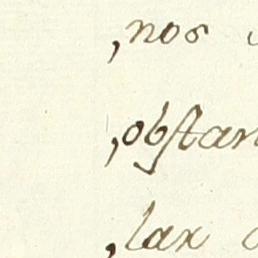 ,nos
,obſtan
,lax